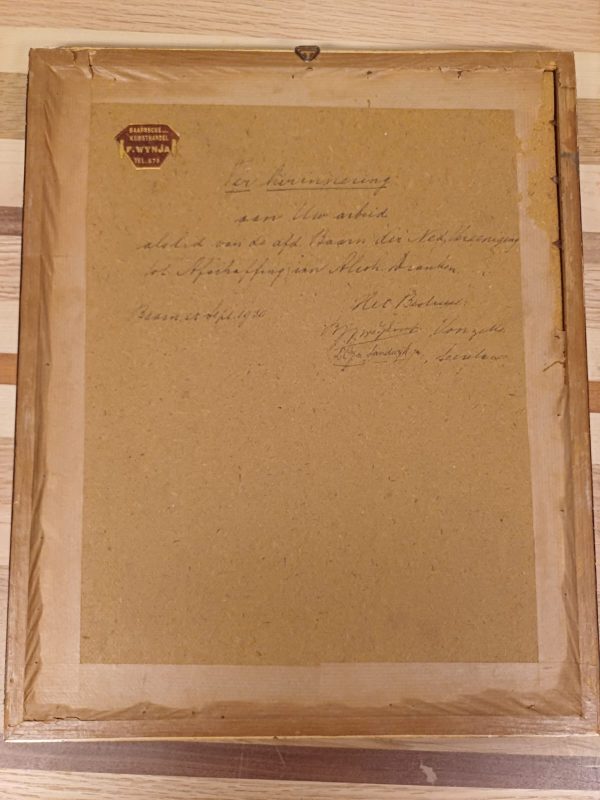 BAARNSCHE
KUNSTHANDEL
F. WYNJA
TEL. 675
Ter herinnering
aan Uw arbeid
als lid van de afd. Baarn der Ned. Vereeniging
tot Afschaffing van Alcoh. Dranken.
Baarn Sept. 19
Het Bestuur: